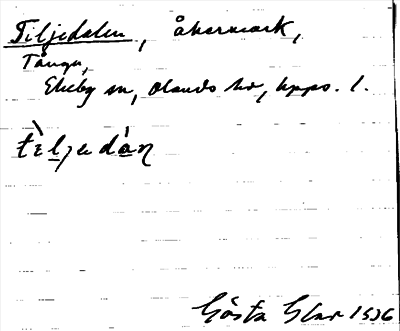 Tiljedalen, åkermark,
Tånga,
Ekeby sn, Olands hd, Upps. l.
tìljedàn
Gösta Clar 1936